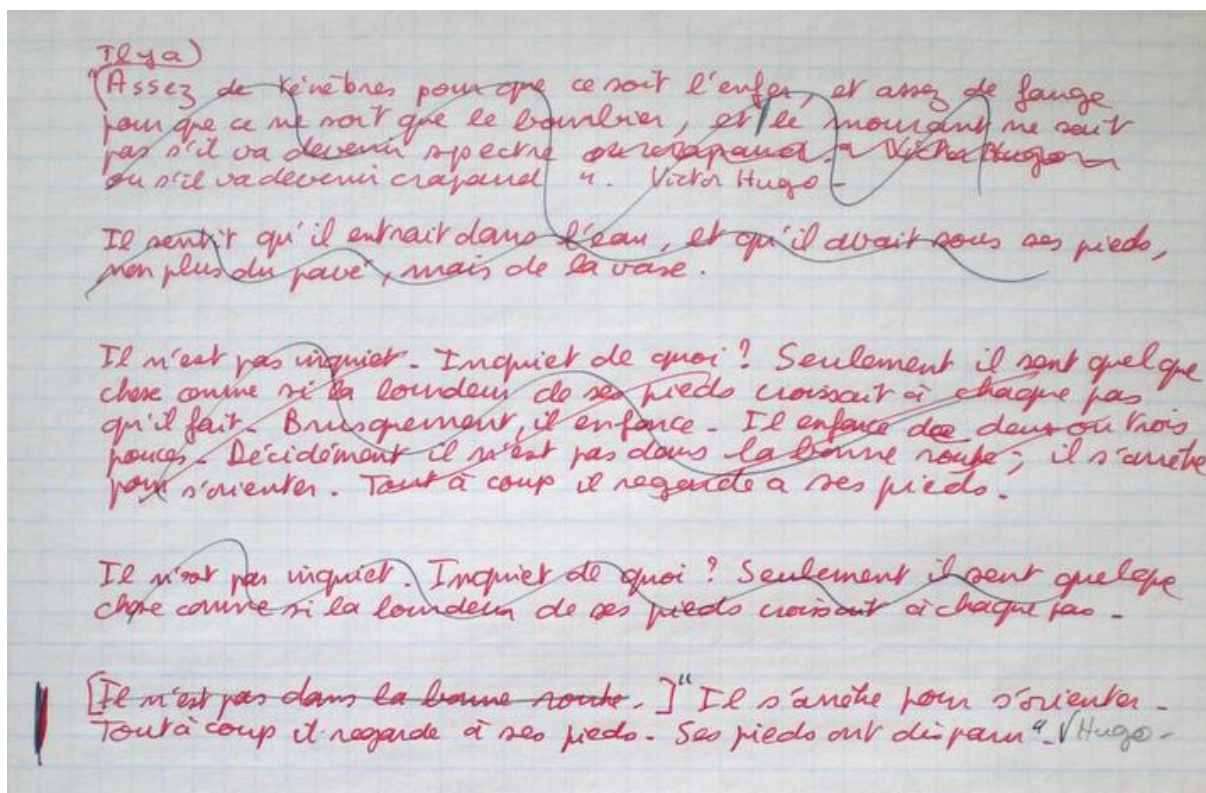 Il y a)
"(Assez de ténèbres pour que ce soit l'enfer, et assez de fange
pour que ce ne soit que le bourbier, et le mourant ne sait
pas s'il va devenir spectre ou crapaud " Victor Hugo
ou s'il va devenir crapaud ". Victor Hugo -
Il sentit qu'il entrait dans l'eau, et qu'il avait sous ses pieds,
non plus du pavé, mais de la vase.
Il n'est pas inquiet. Inquiet de quoi ? Seulement il sent quelque
chose comme si la lourdeur de ses pieds croissait à chaque pas
qu'il fait. Brusquement, il enfonce. Il enfonce de deux ou trois
pouces. Décidément il n'est pas dans la bonne route ; il s'arrête
pour s'orienter. Tout à coup il regarde a ses pieds.
Il n'est pas inquiet. Inquiet de quoi ? Seulement il sent quelque
chose comme si la lourdeur de ses pieds croissait à chaque pas -
[Il n'est pas dans la bonne route.]" Il s'arrête pour s'orienter -
Tout à coup il regarde à ses pieds. Ses pieds ont disparu". V Hugo -